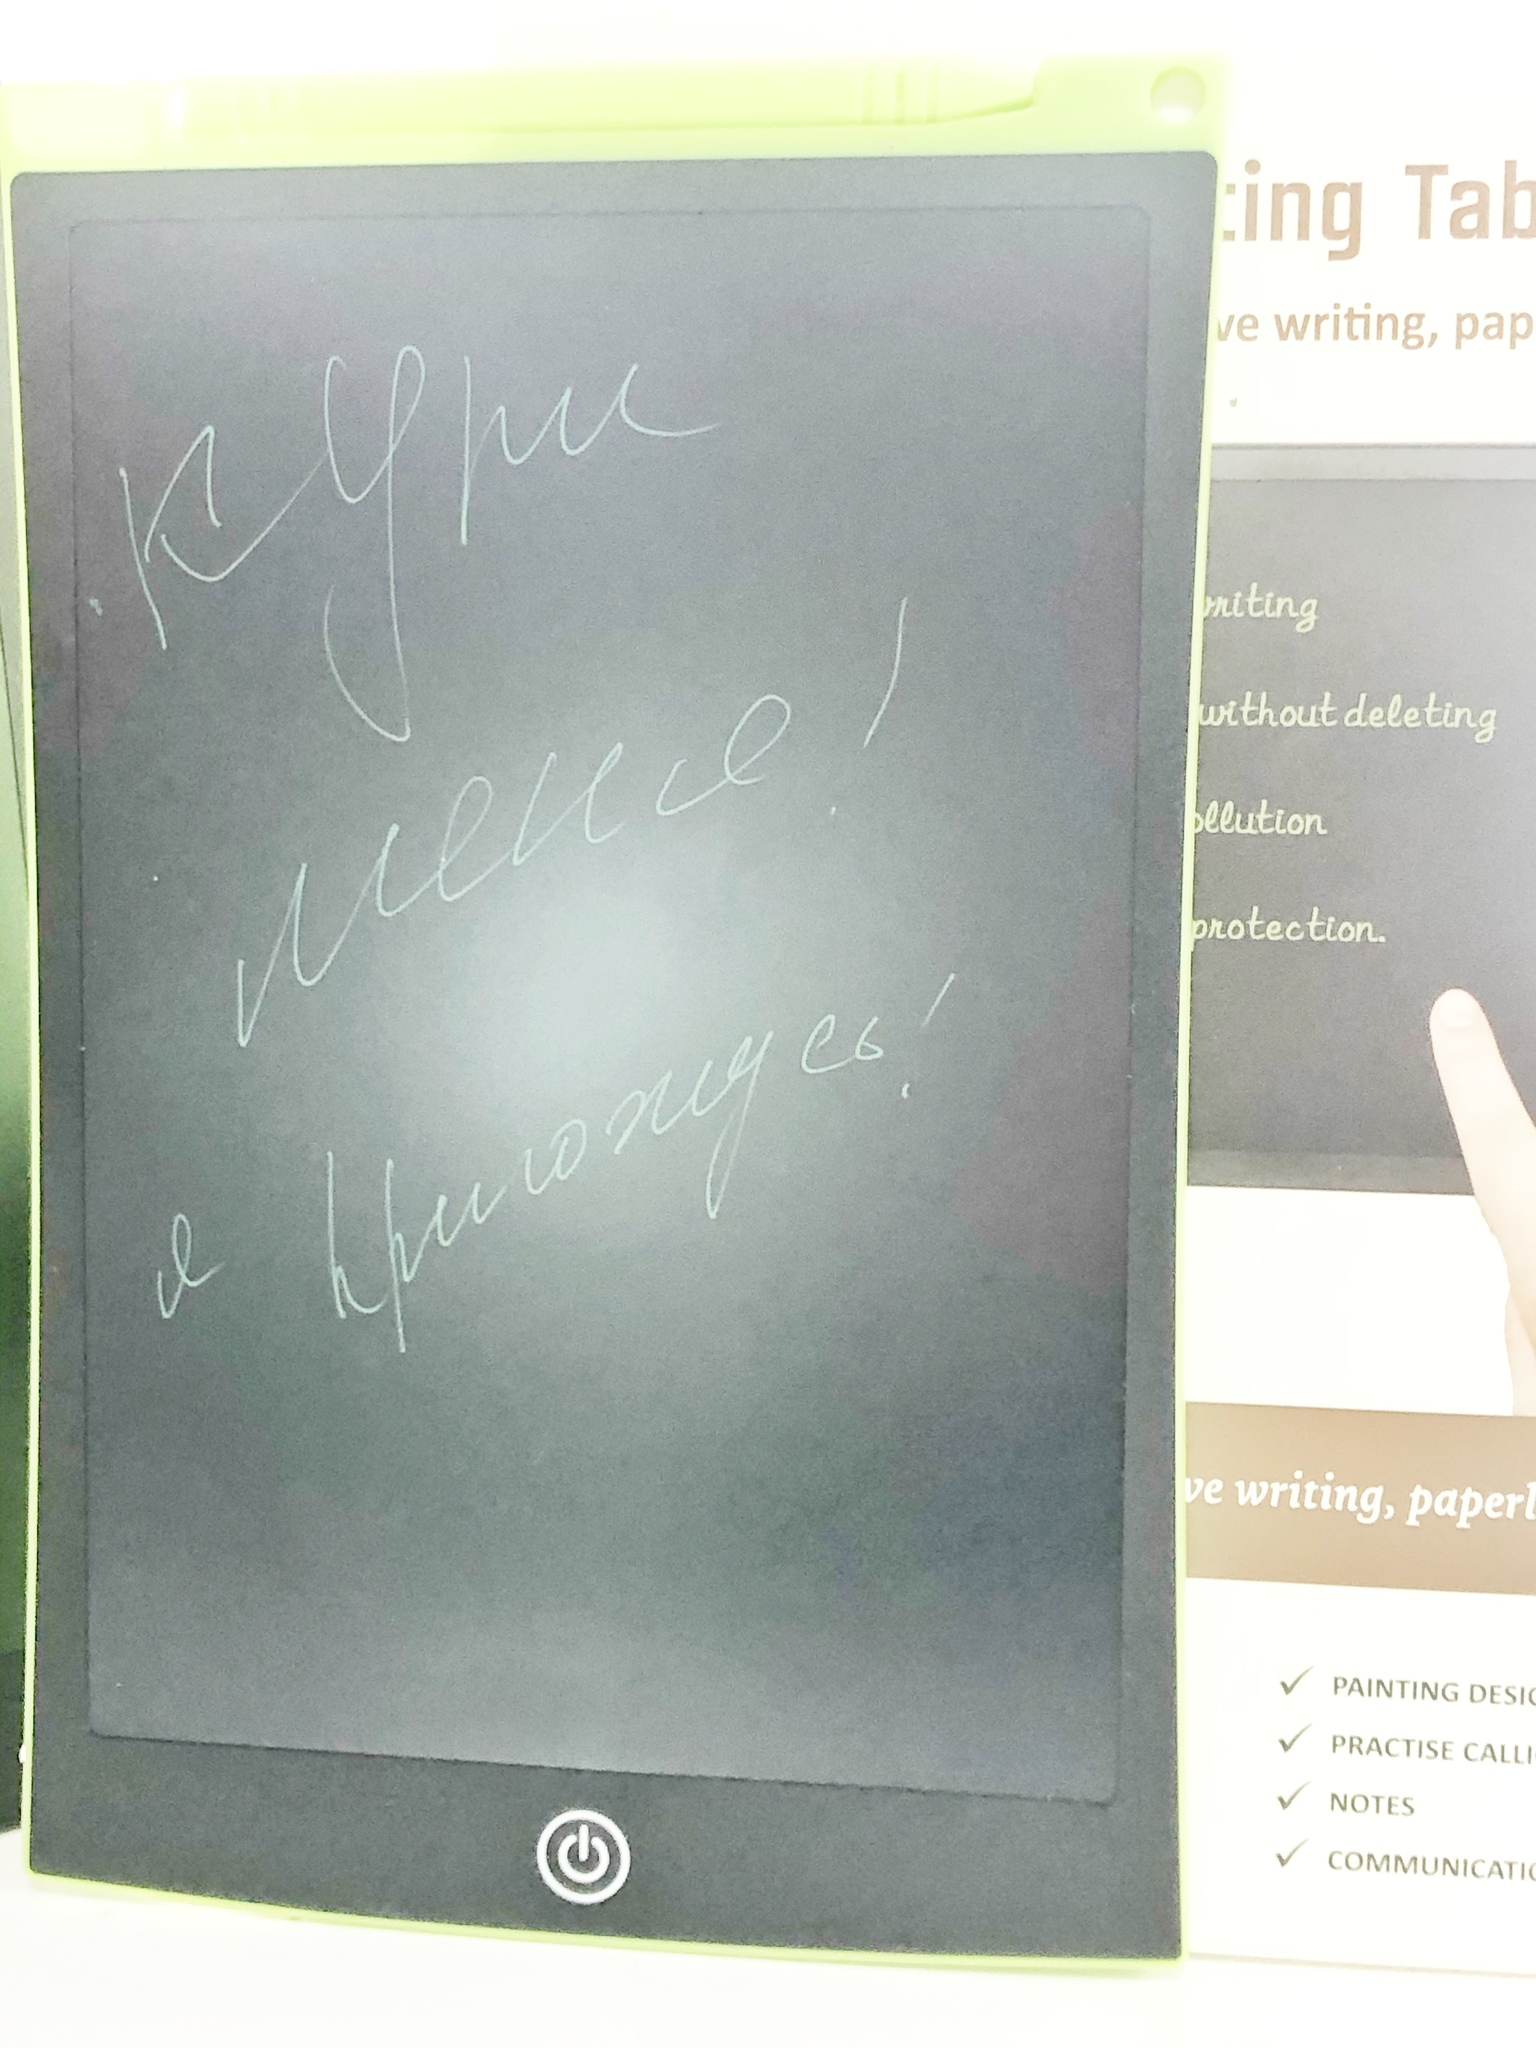 Купи
меня!
я пригожусь!
ting Tab
ve writing, pap
writing
without deleting
ollution
protection.
ve writing, paperl
✓ PAINTING DESIG
✓ PRACTISE CALLI
✓ NOTES
✓ COMMUNICATIO